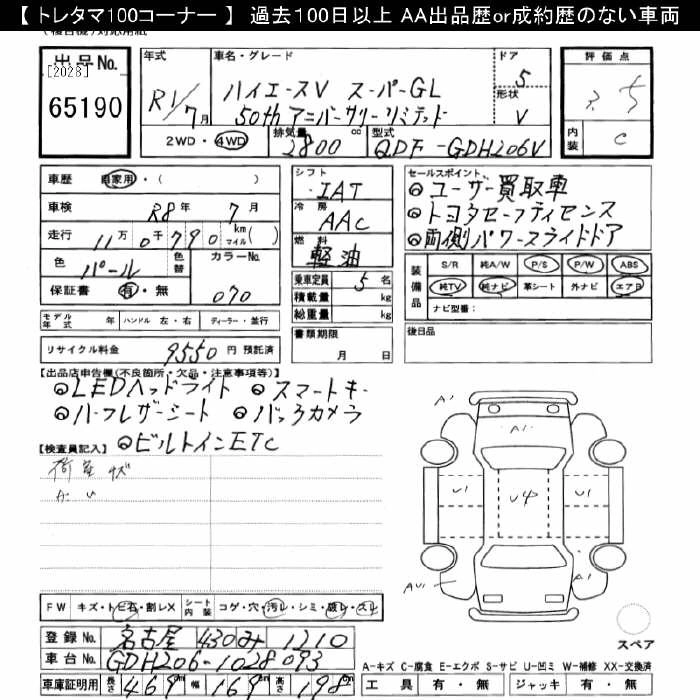 【 トレタマ100コーナー 】 過去100日以上 AA出品歴or成約歴のない車両
出品No.
[2028]
65190
年式 R1/7月
車名・グレード ハイエースV スーパーGL
50th アニバーサリーリミテッド
ドア 5
形状 V
評価点
内装 C
2WD・4WD 排気量 2800 cc 型式 QDF-GDH206V
車歴 自家用・( )
車検 R8年 7月
走行 11万0千790 km マイル( )
色 パール 色替 カラーNo. 070
保証書 有・無
シフト IAT
冷房 AAC
燃料 軽油
乗車定員 5名
積載量 kg
総重量 kg
書類期限
月 日
セールスポイント
◎ユーザー買取車
◎トヨタセーフティセンス
◎両側パワースライドドア
装備品
S/R 純A/W P/S P/W ABS
純TV 純ナビ 革シート 外ナビ エアB
ナビ型番:
後日品
モデル年式 年 ハンドル 左・右 ディーラー・並行
リサイクル料金 9550 円 預託済
【出品店申告欄(不良箇所・欠品・注意事項等)】
◎LEDヘッドライト ◎スマートキー
◎ハーフレザーシート ◎バックカメラ
◎ビルトインETC
【検査員記入】
荷室状
FW キズ・トビ石・割レX シート内装 コゲ・穴・汚レ・シミ・破レ・スレ
登録No. 名古屋 430 み 1210
車台No. GDH206-1028093
車庫証明用 長さ 469cm 幅 169cm 高さ 198cm
A1
A1
U1 U4 U1
AU1 A1
スペア
A-キズ C-腐食 E-エクボ S-サビ U-凹ミ W-補修 XX-交換済
工具 有・無 ジャッキ 有・無